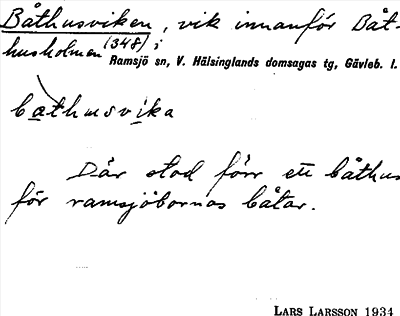 Båthusviken, vik innanför Båt-
husholmen (348) i
Ramsjö sn, V. Hälsinglands domsagas tg, Gävleb. l.
bathusvika
Där stod förr ett båthus
för ramsjöbornas båtar.
LARS LARSSON 1934